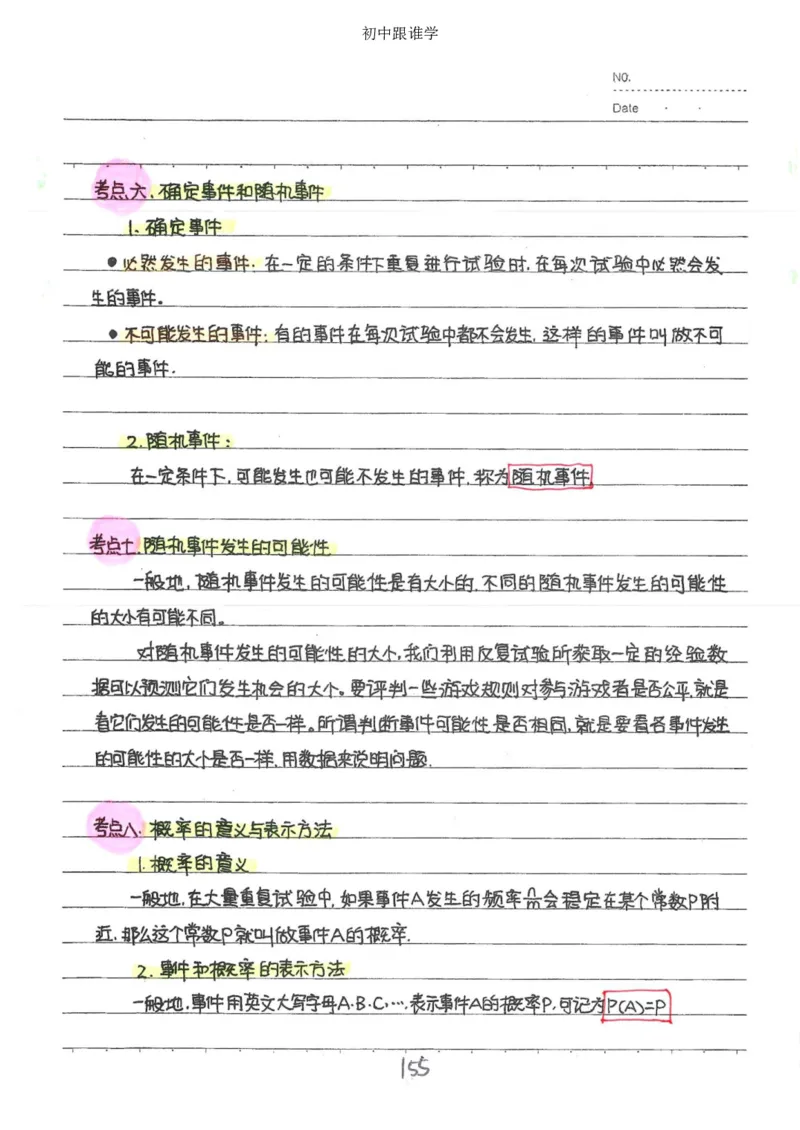 初中跟谁学
NO.
Date
考点六、确定事件和随机事件
1、确定事件
●必然发生的事件：在一定的条件下重复进行试验时，在每次试验中必然会发
生的事件。
●不可能发生的事件：有的事件在每次试验中都不会发生，这样的事件叫做不可
能的事件.
2.随机事件：
在一定条件下，可能发生也可能不发生的事件，称为随机事件。
考点七、随机事件发生的可能性
一般地，随机事件发生的可能性是有大小的，不同的随机事件发生的可能性
的大小有可能不同。
对随机事件发生的可能性的大小，我们利用反复试验所获取一定的经验数
据可以预测它们发生机会的大小。要评判一些游戏规则对参与游戏者是否公平，就是
看它们发生的可能性是否一样。所谓判断事件可能性是否相同，就是要看各事件发生
的可能性的大小是否一样，用数据来说明问题.
考点八、概率的意义与表示方法
1.概率的意义
一般地，在大量重复试验中，如果事件A发生的频率n/m会稳定在某个常数P附
近，那么这个常数P就叫做事件A的概率.
2.事件和概率的表示方法
一般地，事件用英文大写字母A.B.C,…，表示事件A的概率P，可记为P(A)=P
155